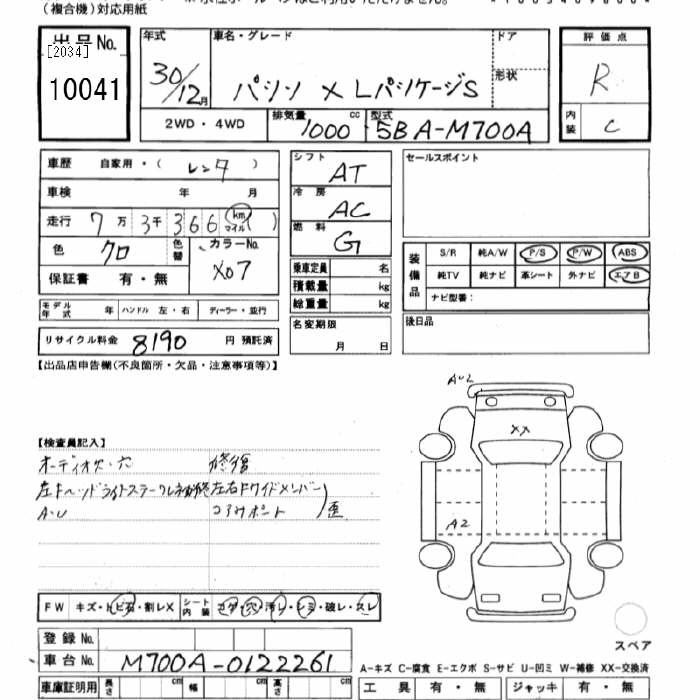 (複合機)対応用紙
出品No. 年式 車名・グレード ドア 評価点
[2034]
10041 30/12月 パッソ X LパッケージS 形状 R
2WD・4WD 排気量 1000 cc 型式 5BA-M700A 内装 C
車歴 自家用・( レンタ ) シフト AT セールスポイント
車検 年 月 冷房 AC
走行 7万3千366 km マイル ( ) 燃料 G
色 クロ 色替 カラーNo. X07
保証書 有・無
乗車定員 名
積載量 kg
総重量 kg
装備品 S/R 純A/W P/S P/W ABS
純TV 純ナビ 革シート 外ナビ エアB
ナビ型番:
モデル年式 年 ハンドル 左・右 ディーラー・並行
名変期限 月 日
後日品
リサイクル料金 8190 円 預託済
【出品店申告欄(不良箇所・欠品・注意事項等)】
AU2
XX
A2
【検査員記入】
オーディオケ・穴 修復
左Fヘッドライトステー 左右Fワイドメンバー
A・U コアサポート 歪
FW キズ・トビ石・割レX シート内装 コゲ・穴・汚レ・シミ・破レ・スレ
スペア
登録No.
車台No. M700A-0122261
A-キズ C-腐食 E-エクボ S-サビ U-凹ミ W-補修 XX-交換済
車庫証明用 長さ cm 幅 cm 高さ cm 工具 有・無 ジャッキ 有・無